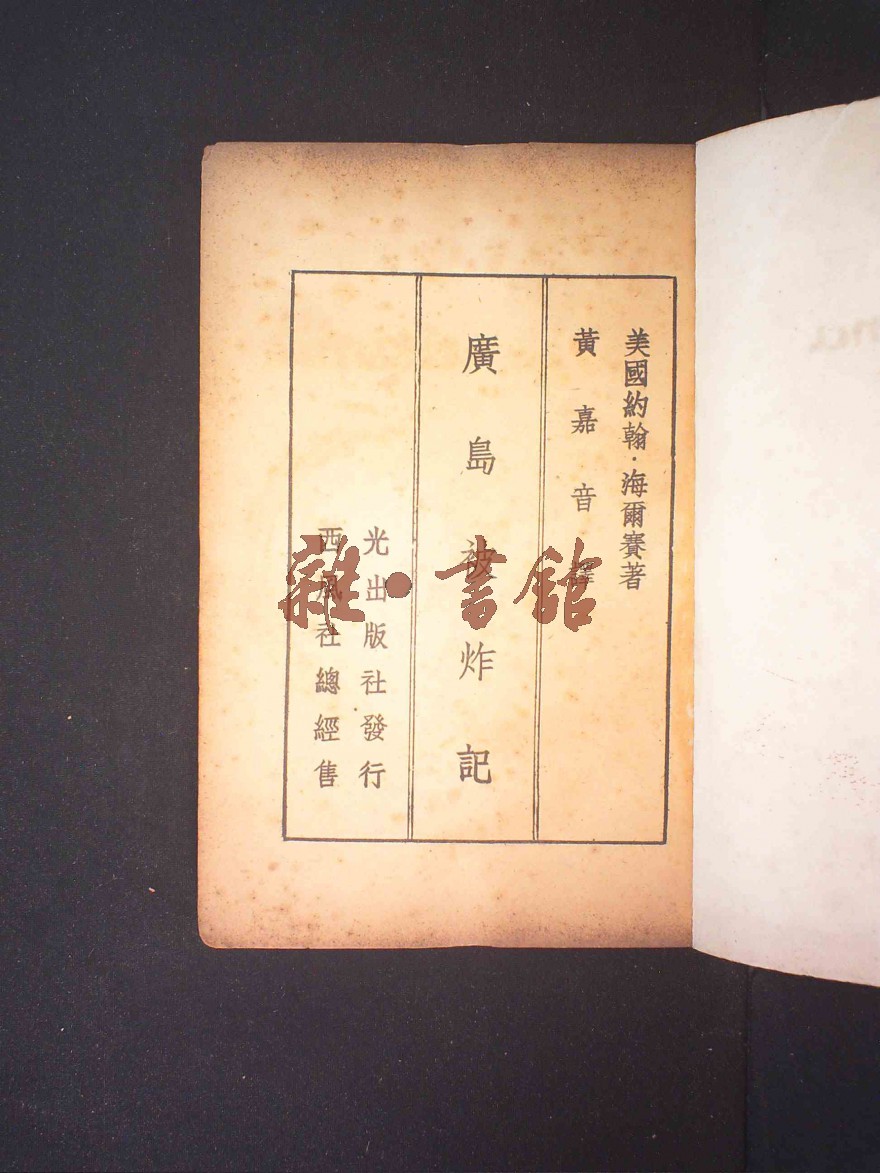 美國約翰·海爾賽著
黃嘉音譯
廣島被炸記
光出版社發行
西風社總經售
雜·書館